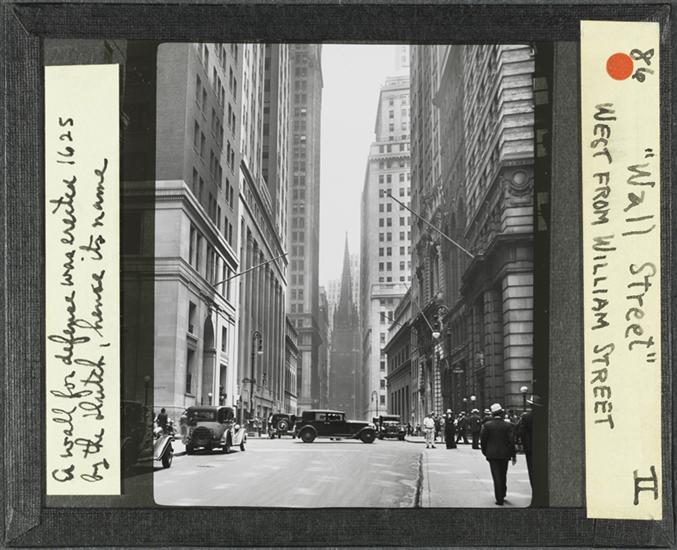 A wall for defence was erected 1625
by the Dutch, hence its name
86
"Wall Street"
WEST FROM WILLIAM STREET
II